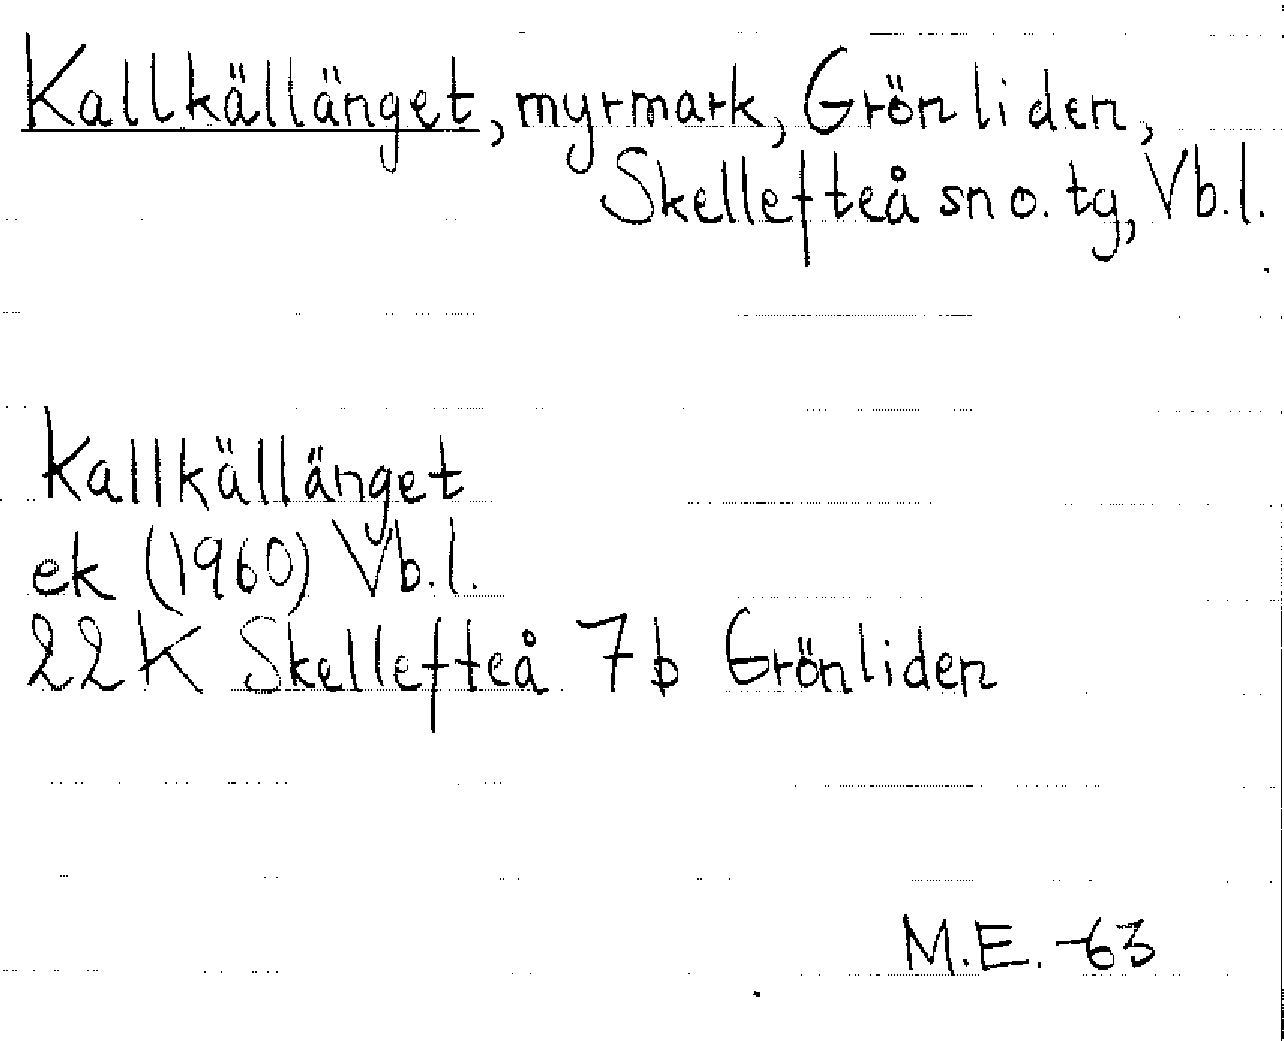 Kallkällänget, myrmark, Grönliden,
Skellefteå sn o. tg, Vb.l.
Kallkällänget
ek (1960) Vb.l.
22K Skellefteå 7b Grönliden
M.E. -63